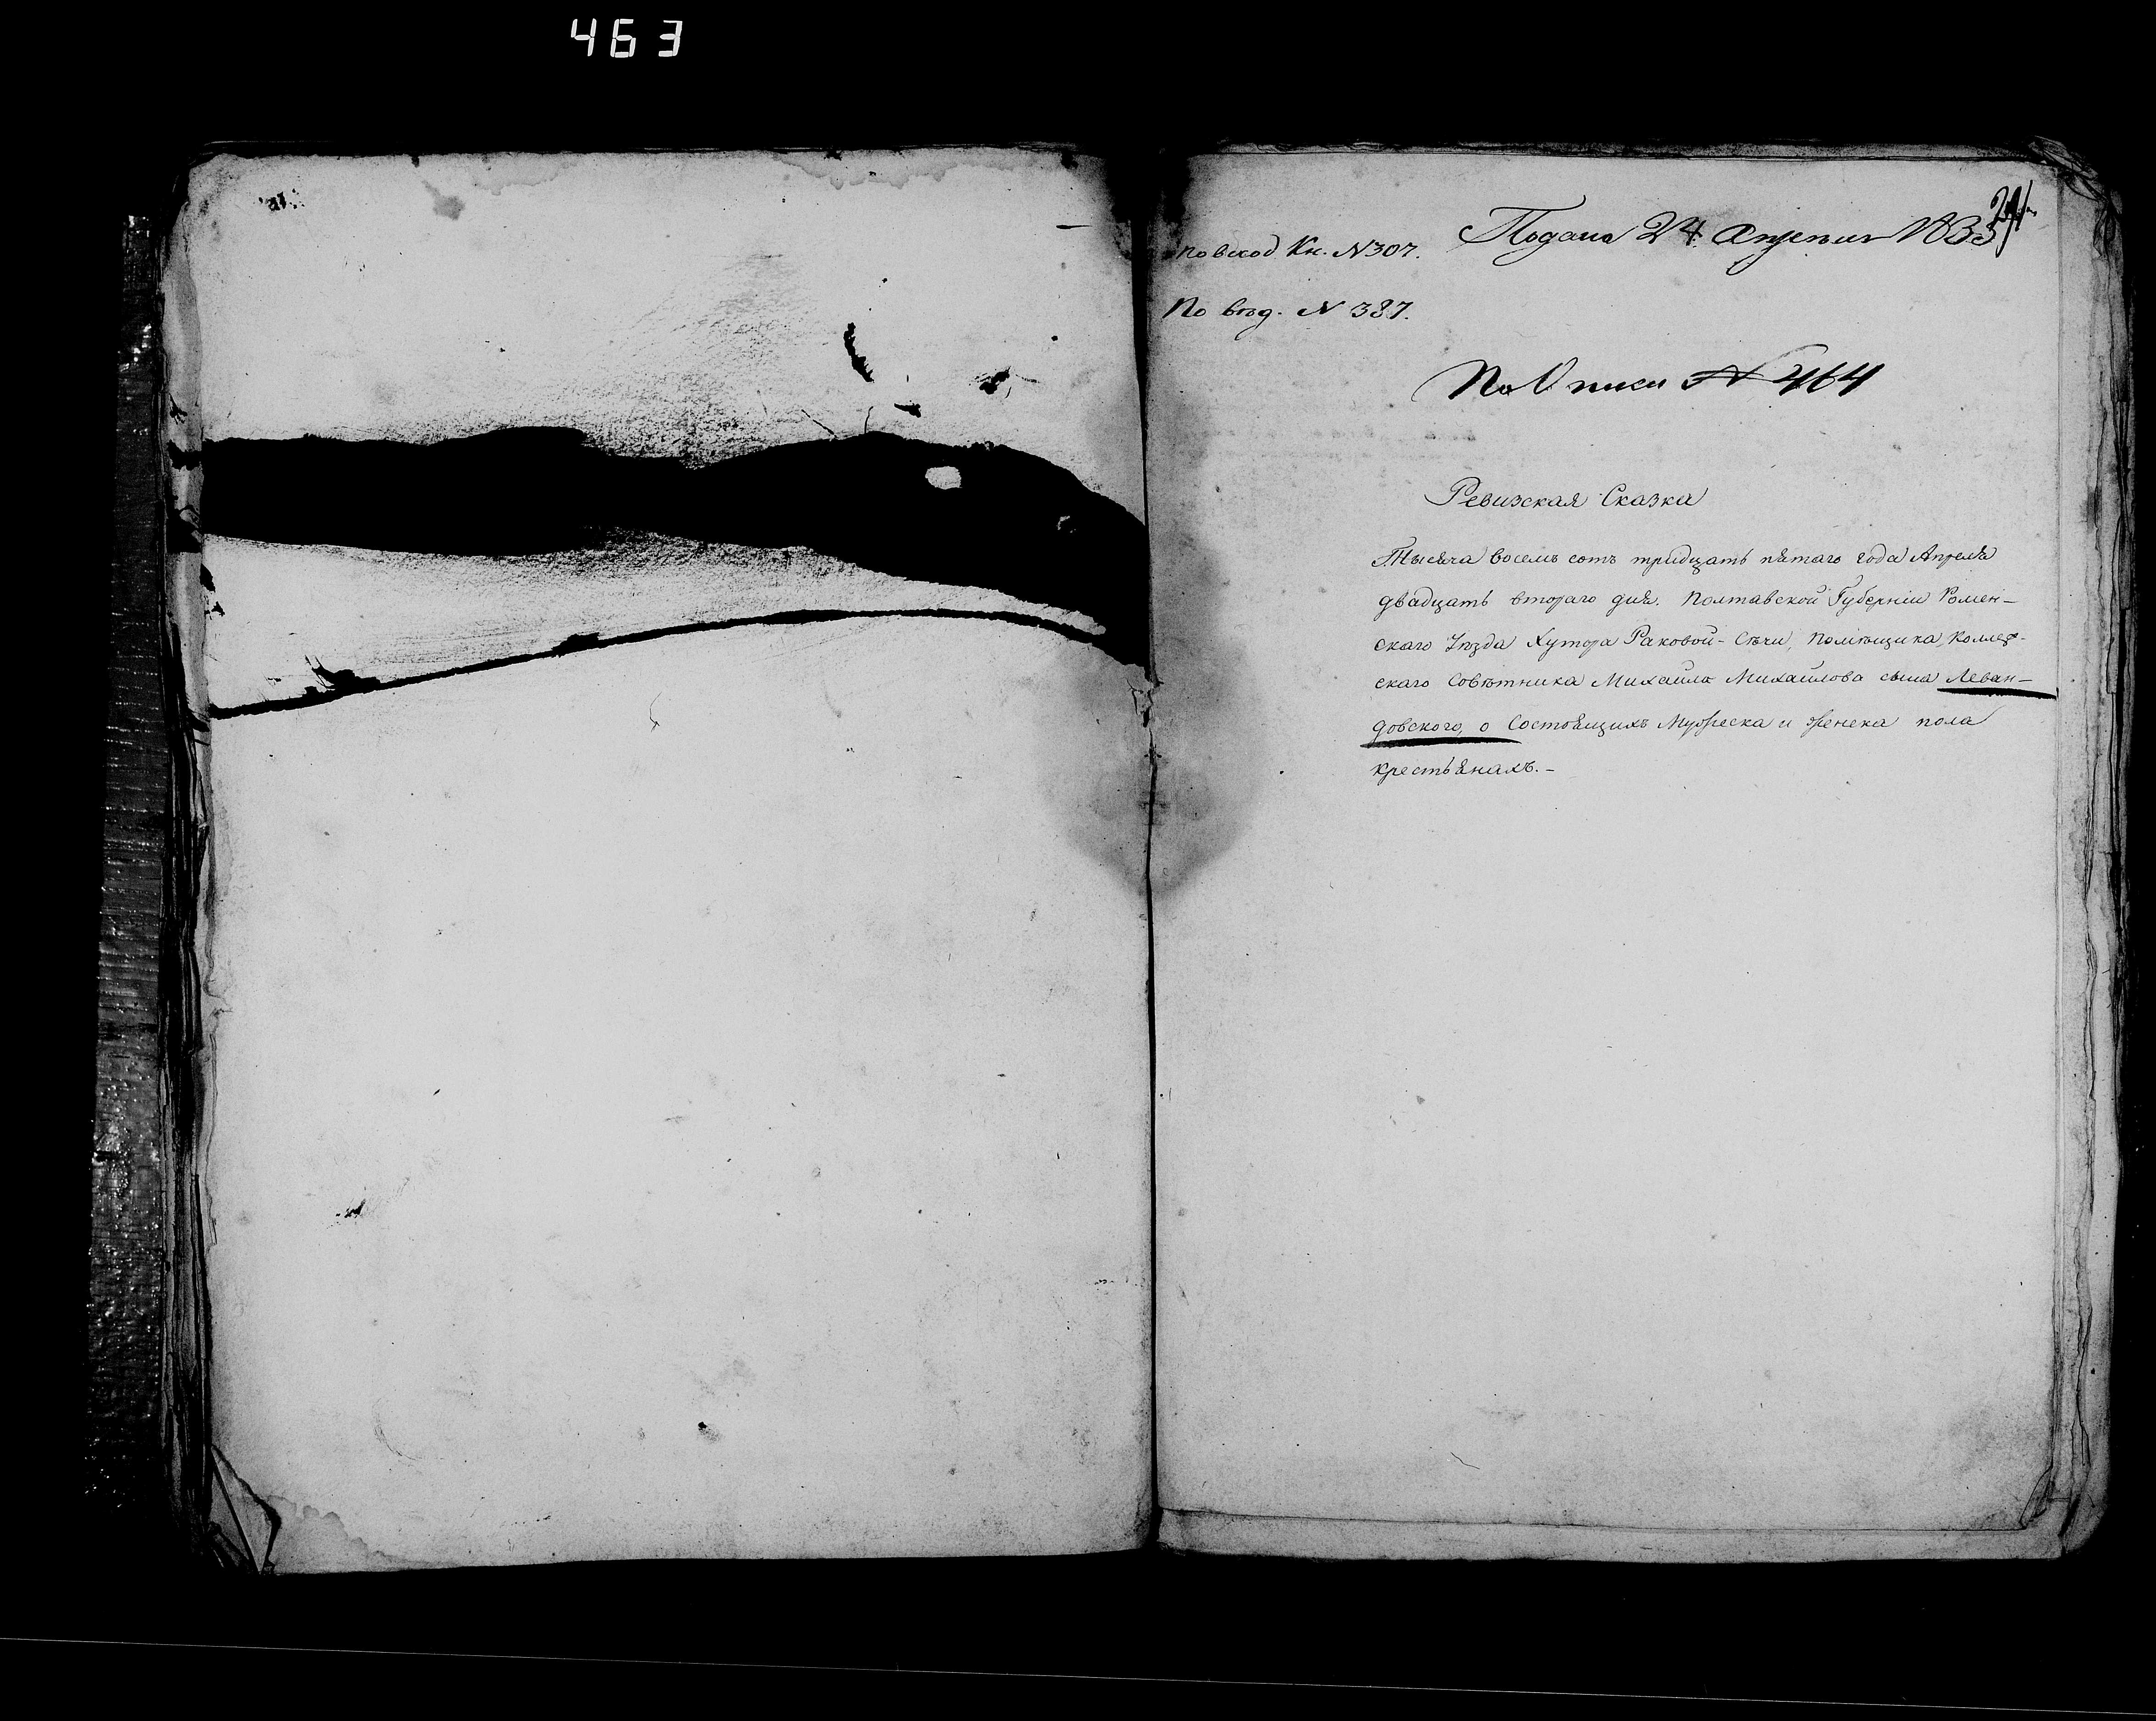 463
Подана 24 Апреля 1835
по вход Кн. N 307.
По вѣд. N 387.
По Описи N 464
Ревизская Сказка
Тысяча восемь сотъ тридцать пятаго года Апреля
двадцать втораго дня. Полтавской Губерніи Ромен-
скаго Уѣзда Хутора Раковой-Сѣчи, помѣщика, Коллеж-
скаго Совѣтника Михаила Михайлова сына Леван-
довского, о Состоящихъ Мужеска и женска пола
крестьянахъ.-